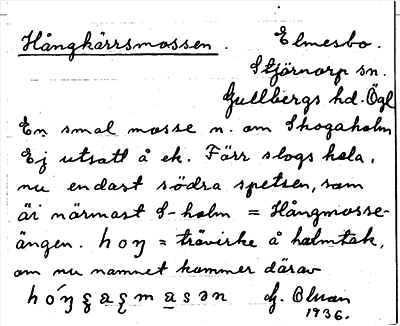 Hångkärrsmossen. Elmesbo.
Stjärnorp sn.
Gullbergs hd. Ögl
En smal mosse n. om Skogaholm
Ej utsatt å ek. Förr slogs hela,
nu endast södra spetsen, som
är närmast S-holm = Hångmosse-
ängen. hoŋ = trävirke å halmtak,
om nu namnet kommer därav
1936.